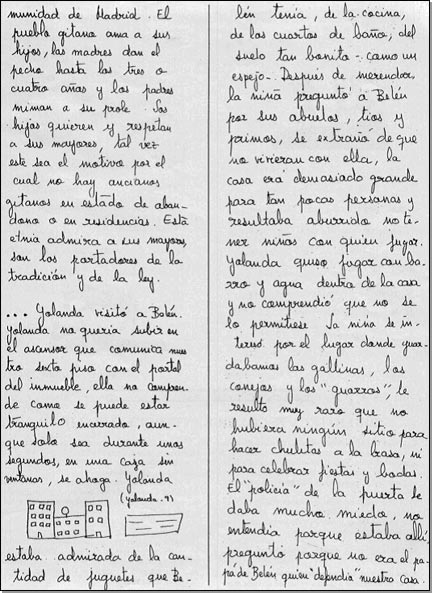 munidad de Madrid. El
pueblo gitano ama a sus
hijos, las madres dan el
pecho hasta los tres o
cuatro años y los padres
miman a su prole. Los
hijos quieren y respetan
a sus mayores, tal vez
este sea el motivo por el
cual no hay ancianos
gitanos en estado de aban-
dono o en residencias. Esta
etnia admira a sus mayores,
son los portadores de la
tradición y de la ley.
... Yolanda visitó a Belén.
Yolanda no quería subir en
el ascensor que comunica nues
tro sexto piso con el portal
del inmueble, ella no compren-
de como se puede estar
tranquilo encerrado, aun-
que solo sea durante unos
segundos, en una caja sin
ventanas, se ahoga. Yolanda
(Yolanda. 9)
estaba admirada de la can-
tidad de juguetes que Be-
lén tenía, de la cocina,
de los cuartos de baño, del
suelo tan bonito - como un
espejo -. Después de merendar,
la niña preguntó a Belén
por sus abuelos, tíos y
primos, se extrañó de que
no vivieran con ella, la
casa era demasiado grande
para tan pocas personas y
resultaba aburrido no te-
ner niños con quien jugar.
Yolanda quiso jugar con ba-
rro y agua dentro de la casa
y no comprendió que no se
lo permitiese. La niña se in-
teresó por el lugar donde guar-
dabamos las gallinas, los
conejos y los "guarros", le
resultó muy raro que no
hubiera ningún sitio para
hacer chuletas a la brasa, ni
para celebrar fiestas y bodas.
El "policía" de la puerta le
daba mucho miedo, no
entendía porque estaba allí
preguntó porque no era el pa-
pá de Belén quien "defendía" nuestra casa.